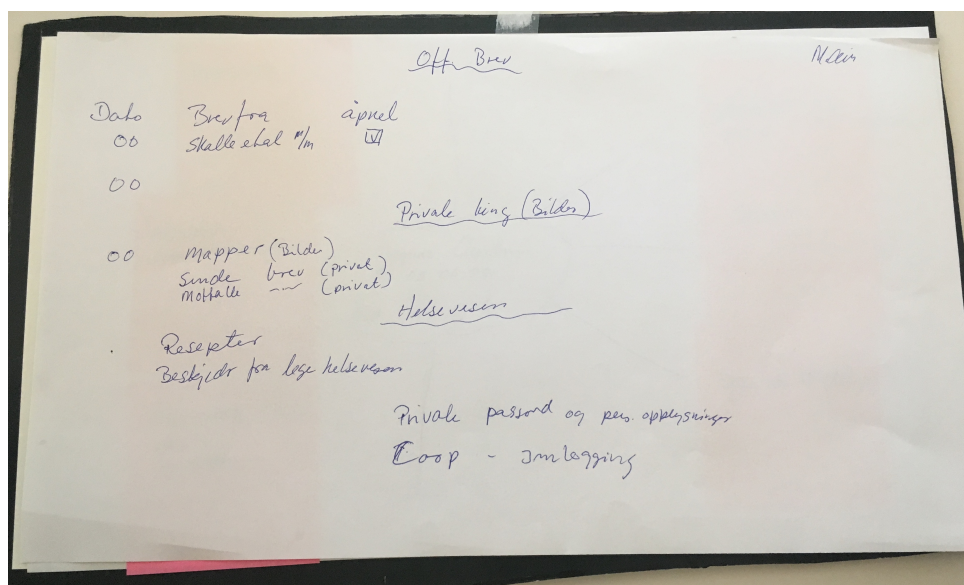 Off. Brev
Dato Brev fra åpnet
00 Skatteetat m/m ☑
00
Private ting (Bilder)
00 Mapper (Bilder)
Sendte brev (privat)
Mottatte —"— (privat)
Helsevesen
Resepter
Beskjeder fra lege helsevesen
Private passord og pers. opplysninger
Coop - Innlogging